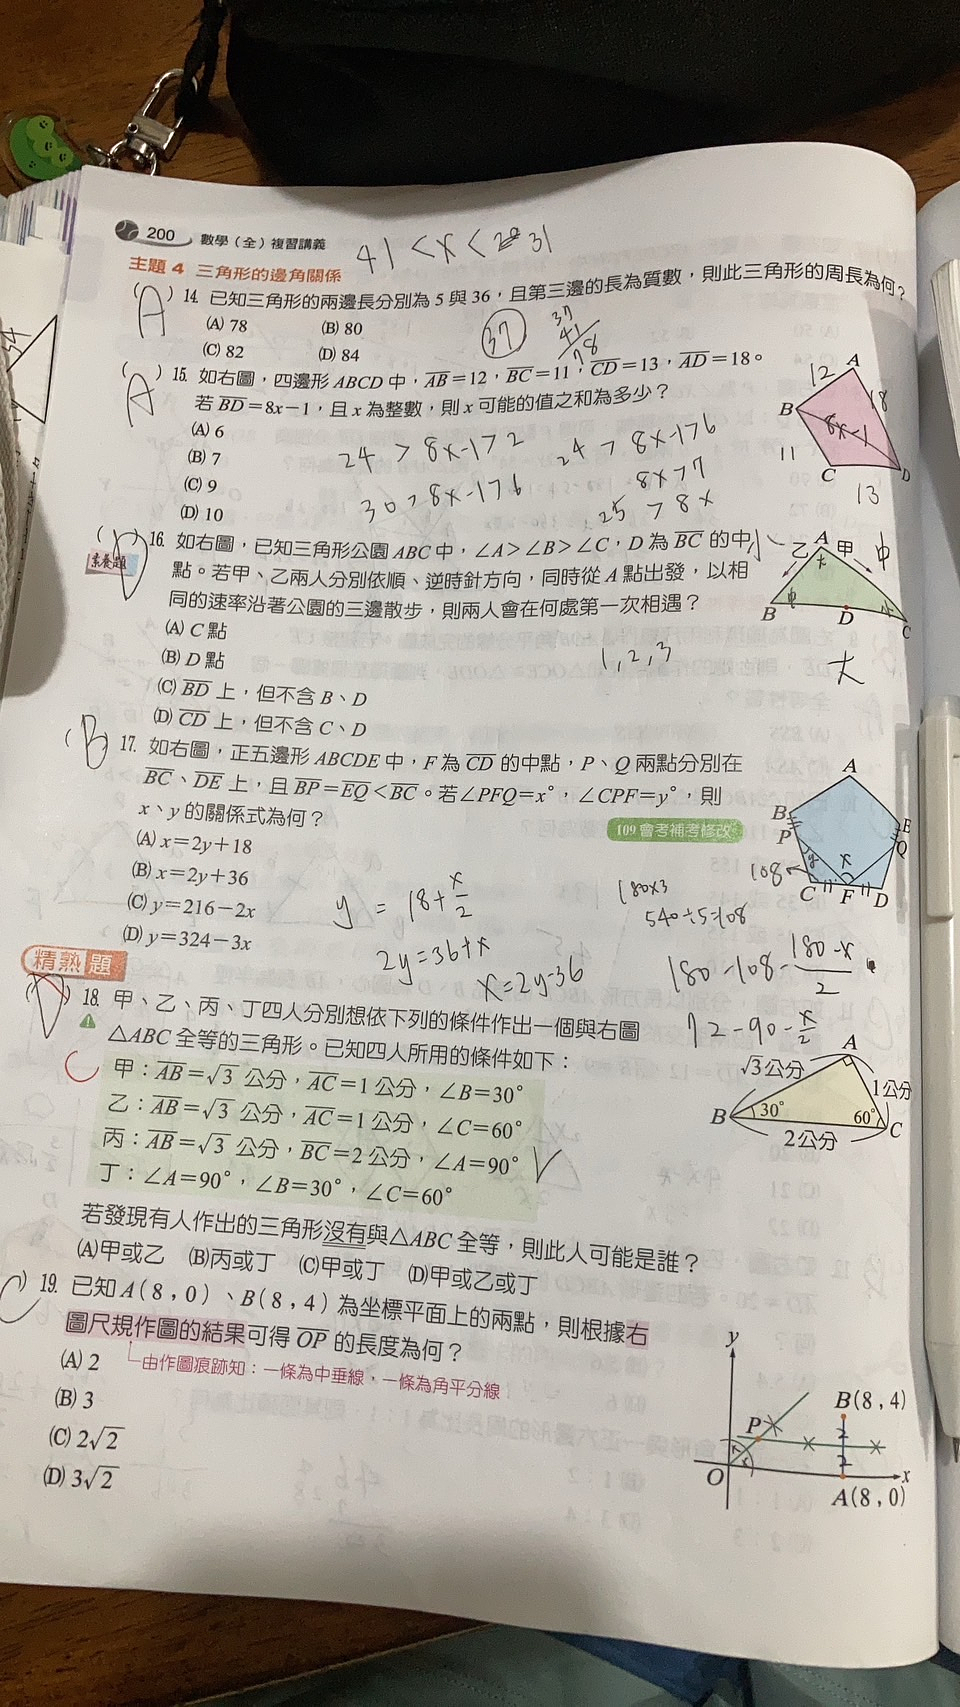 200 數學（全）複習講義
41 < x < 31
主題 4 三角形的邊角關係
( A ) 14. 已知三角形的兩邊長分別為 5 與 36，且第三邊的長為質數，則此三角形的周長為何？
(A) 78 (B) 80
(C) 82 (D) 84
37
37
41
78
( A ) 15. 如右圖，四邊形 ABCD 中，AB=12，BC=11，CD=13，AD=18。
若 BD=8x−1，且 x 為整數，則 x 可能的值之和為多少？
(A) 6
(B) 7
(C) 9
(D) 10
24 > 8x-1 > 2
24 > 8x-1 > 6
30 > 8x-1 > 6
8x > 7
25 > 8x
A
12
18
B
8x-1
11
C
D
13
( D ) 16. 如右圖，已知三角形公園 ABC 中，∠A＞∠B＞∠C，D 為 BC 的中
素養題
點。若甲、乙兩人分別依順、逆時針方向，同時從 A 點出發，以相
同的速率沿著公園的三邊散步，則兩人會在何處第一次相遇？
(A) C 點
(B) D 點
(C) BD 上，但不含 B、D
(D) CD 上，但不含 C、D
1, 2, 3
小
乙 A 甲
中
大
中
小
B D C
大
( B ) 17. 如右圖，正五邊形 ABCDE 中，F 為 CD 的中點，P、Q 兩點分別在
BC、DE 上，且 BP=EQ＜BC。若∠PFQ=x°，∠CPF=y°，則
x、y 的關係式為何？
109 會考補考修改
(A) x=2y+18
(B) x=2y+36
(C) y=216−2x
(D) y=324−3x
y = 18+x/2
2y=36+x
x=2y-36
180×3
540÷5=108
180-108-(180-x)/2
72-90-x/2
A
B
E
P
Q
y
x
108
C F D
精熟題
( D ) 18. 甲、乙、丙、丁四人分別想依下列的條件作出一個與右圖
△ABC 全等的三角形。已知四人所用的條件如下：
C
甲：AB=√3 公分，AC=1 公分，∠B=30°
乙：AB=√3 公分，AC=1 公分，∠C=60°
丙：AB=√3 公分，BC=2 公分，∠A=90°
丁：∠A=90°，∠B=30°，∠C=60°
若發現有人作出的三角形沒有與△ABC 全等，則此人可能是誰？
(A)甲或乙 (B)丙或丁 (C)甲或丁 (D)甲或乙或丁
A
√3公分
1公分
B
30°
60°
C
2公分
( C ) 19. 已知 A(8，0)、B(8，4)為坐標平面上的兩點，則根據右
圖尺規作圖的結果可得 OP 的長度為何？
由作圖痕跡知：一條為中垂線，一條為角平分線
(A) 2
(B) 3
(C) 2√2
(D) 3√2
y
B(8，4)
P
2
2
O
x
A(8，0)